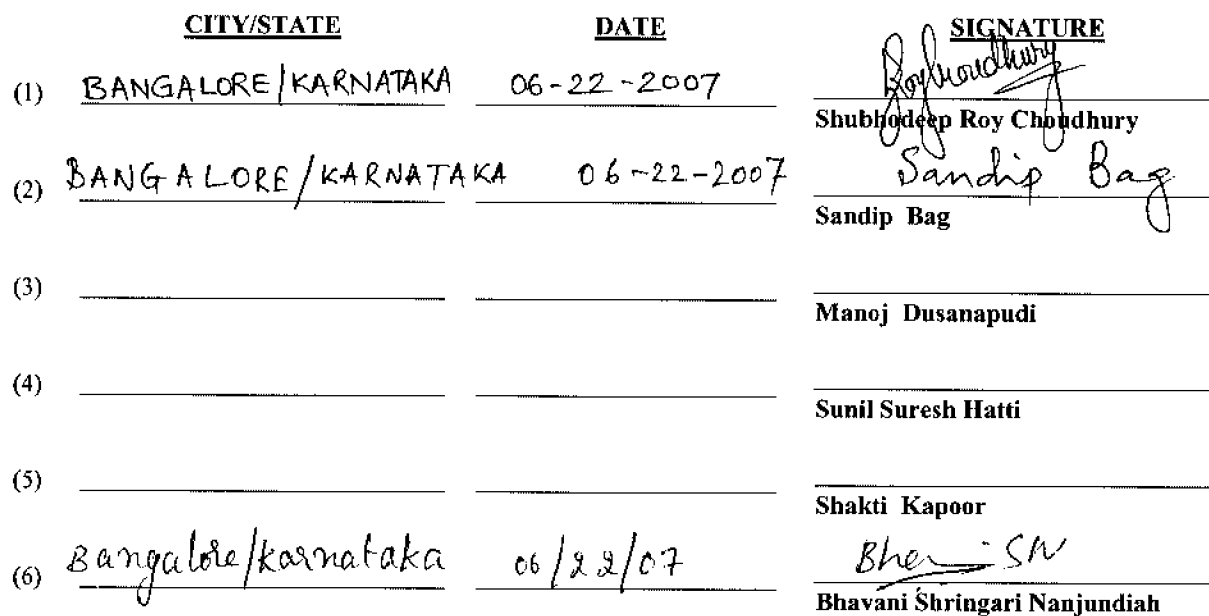 CITY/STATE DATE SIGNATURE
(1) BANGALORE/KARNATAKA 06-22-2007 Roychoudhury
Shubhodeep Roy Choudhury
(2) BANGALORE/KARNATAKA 06-22-2007 Sandip Bag
Sandip Bag
(3)
Manoj Dusanapudi
(4)
Sunil Suresh Hatti
(5)
Shakti Kapoor
(6) Bangalore/karnataka 06/22/07 SN
Bhavani Shringari Nanjundiah